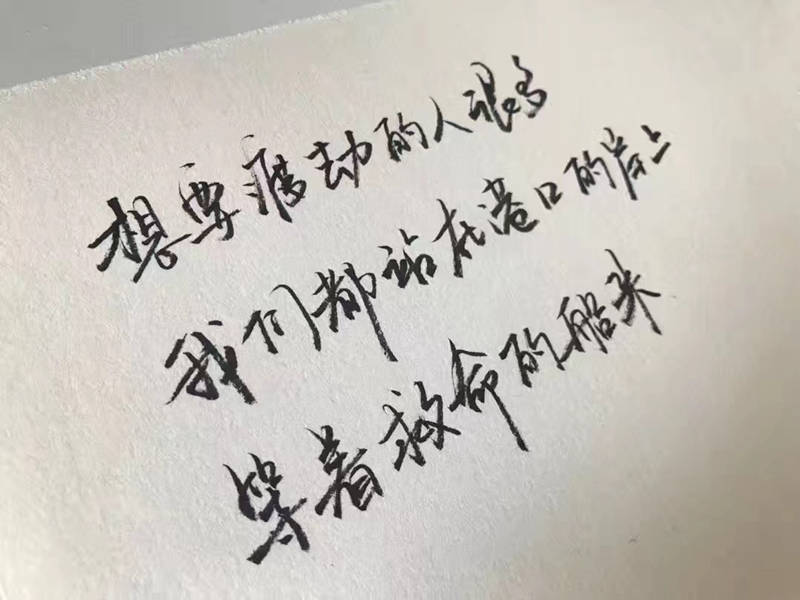 想要渡劫的人很多
我们都站在港口的岸上
等着救命的船来